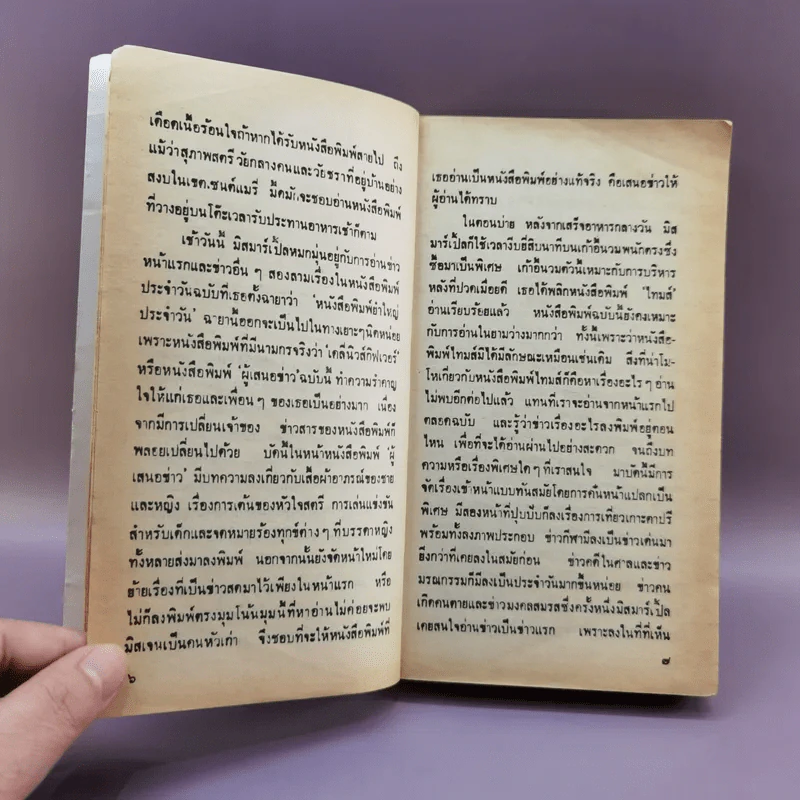 เดือดเนื้อร้อนใจถ้าหากได้รับหนังสือพิมพ์สายไป ถึง
แม้ว่าสุภาพสตรีวัยกลางคนและวัยชราที่อยู่บ้านอย่าง
สงบในเซต.เซนต์แมรี่ มี้ดมักจะชอบอ่านหนังสือพิมพ์
ที่วางอยู่บนโต๊ะเวลารับประทานอาหารเช้าก็ตาม
เช้าวันนี้ มิสมาร์เปิ้ลหมกมุ่นอยู่กับการอ่านข่าว
หน้าแรกและข่าวอื่น ๆ สองสามเรื่องในหนังสือพิมพ์
ประจำวันฉบับที่เธอตั้งฉายาว่า 'หนังสือพิมพ์ยำใหญ่
ประจำวัน' ฉายานี้ออกจะเป็นไปในทางเยาะๆนิดหน่อย
เพราะหนังสือพิมพ์ที่มีนามกรจริงว่า 'เดลี่นิวส์กิฟเวอร์'
หรือหนังสือพิมพ์ 'ผู้เสนอข่าว' ฉบับนี้ ทำความรำคาญ
ใจให้แก่เธอและเพื่อนๆ ของเธอเป็นอย่างมาก เนื่อง
จากมีการเปลี่ยนเจ้าของ ข่าวสารของหนังสือพิมพ์ก็
พลอยเปลี่ยนไปด้วย บัดนี้ในหน้าหนังสือพิมพ์ 'ผู้
เสนอข่าว' มีบทความลงเกี่ยวกับเสื้อผ้าอาภรณ์ของชาย
และหญิง เรื่องการเต้นของหัวใจสตรี การเล่นแข่งขัน
สำหรับเด็กและจดหมายร้องทุกข์ต่างๆ ที่บรรดาหญิง
ทั้งหลายส่งมาลงพิมพ์ นอกจากนั้นยังจัดหน้าใหม่โดย
ย้ายเรื่องที่เป็นข่าวสดมาไว้เพียงในหน้าแรก หรือ
ไม่ก็ลงพิมพ์ตรงมุมโน้นมุมนี้ที่หาอ่านไม่ค่อยจะพบ
มิสเจนเป็นคนหัวเก่า จึงชอบที่จะให้หนังสือพิมพ์ที่
๖
เธออ่านเป็นหนังสือพิมพ์อย่างแท้จริง คือเสนอข่าวให้
ผู้อ่านได้ทราบ
ในตอนบ่าย หลังจากเสร็จอาหารกลางวัน มิส
มาร์เปิ้ลก็ใช้เวลางีบยี่สิบนาทีบนเก้าอี้นวมพนักตรงซึ่ง
ซื้อมาเป็นพิเศษ เก้าอี้นวมตัวนี้เหมาะกับการบริหาร
หลังที่ปวดเมื่อยดี เธอได้พลิกหนังสือพิมพ์ 'ไทมส์'
อ่านเรียบร้อยแล้ว หนังสือพิมพ์ฉบับนี้ยังคงเหมาะ
กับการอ่านในยามว่างมากกว่า ทั้งนี้เพราะว่าหนังสือ-
พิมพ์ไทมส์มิได้มีลักษณะเหมือนเช่นเดิม สิ่งที่น่าโม-
โหเกี่ยวกับหนังสือพิมพ์ไทมส์ก็คือหาเรื่องอะไรๆ อ่าน
ไม่พบอีกต่อไปแล้ว แทนที่เราจะอ่านจากหน้าแรกไป
ตลอดฉบับ และรู้ว่าข่าวเรื่องอะไรลงพิมพ์อยู่ตอน
ไหน เพื่อที่จะได้อ่านผ่านไปอย่างสะดวก จนถึงบท
ความหรือเรื่องพิเศษใดๆ ที่เราสนใจ มาบัดนี้มีการ
จัดเรื่องเข้าหน้าแบบทันสมัยโดยการคั่นหน้าแปลกเป็น
พิเศษ มีสองหน้าที่ปุบปับก็ลงเรื่องการเที่ยวเกาะคาปรี
พร้อมทั้งลงภาพประกอบ ข่าวกีฬามีลงเป็นข่าวเด่นมา
ยิ่งกว่าที่เคยลงในสมัยก่อน ข่าวคดีในศาลและข่าว
มรณกรรมก็มีลงเป็นประจำวันมากขึ้นหน่อย ข่าวคน
เกิดคนตายและข่าวมงคลสมรสซึ่งครั้งหนึ่งมิสมาร์เปิ้ล
เคยสนใจอ่านข่าวเป็นข่าวแรก เพราะลงในที่ที่เห็น
๗